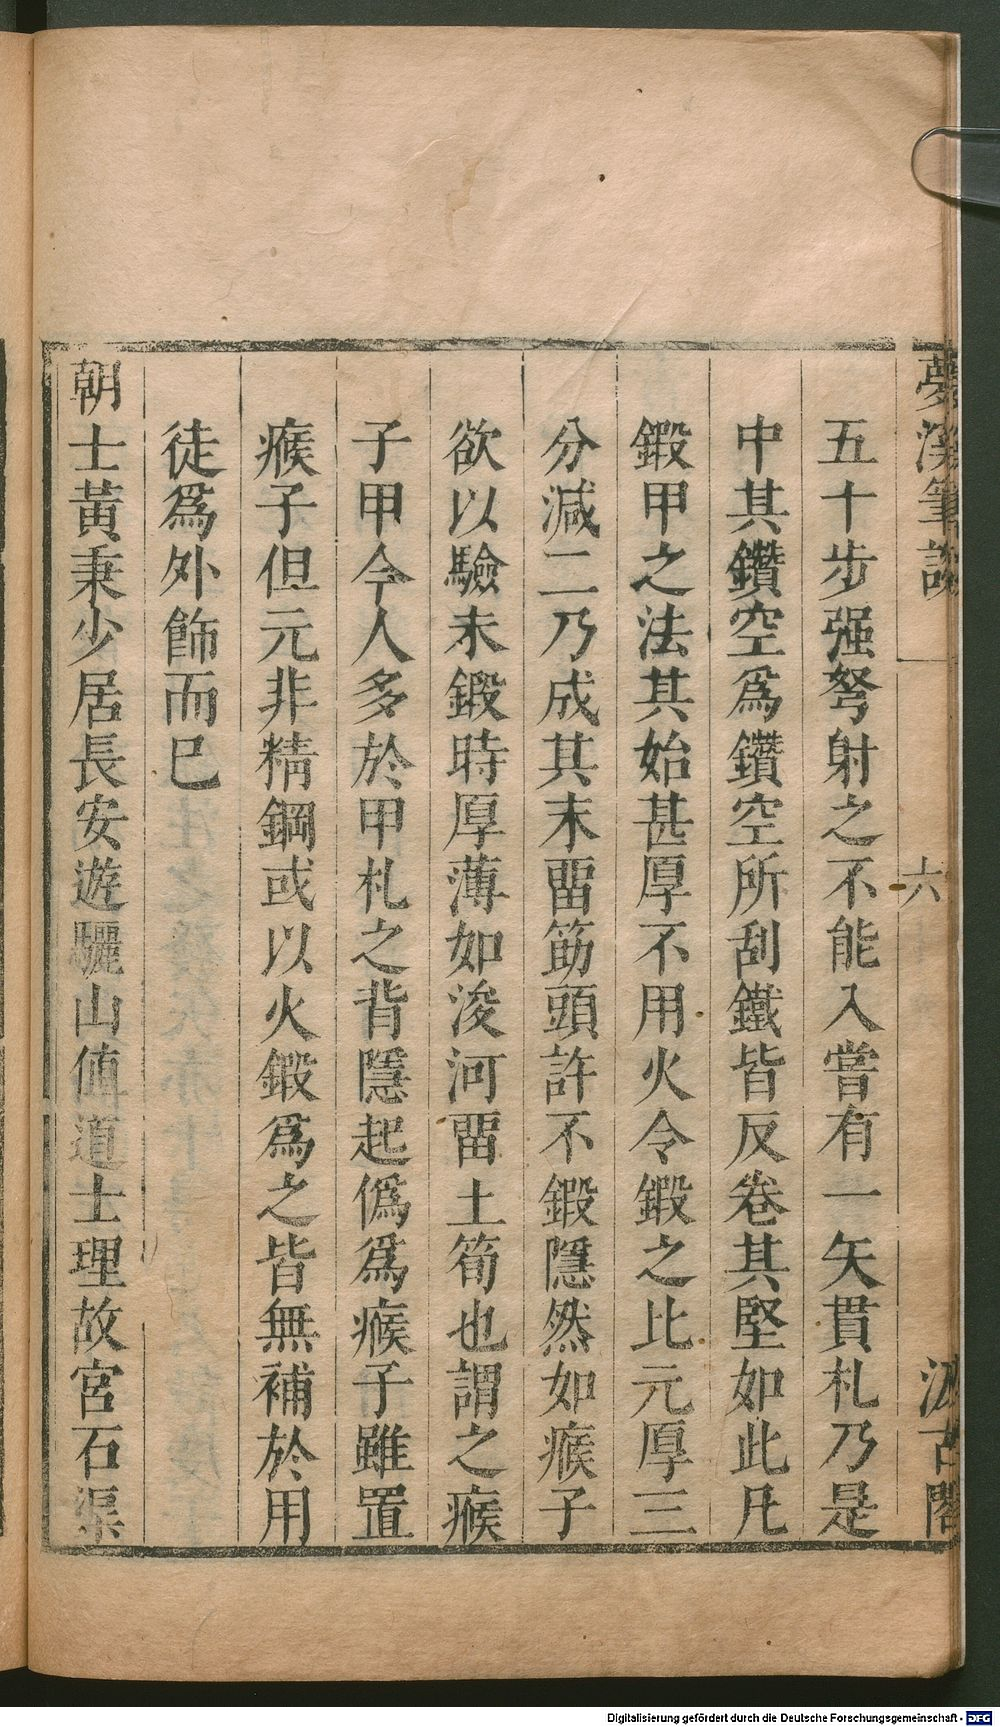 夢溪筆談
六
汲古閣
五十步强弩射之不能入嘗有一矢貫札乃是
中其鑽空爲鑽空所刮鐵皆反卷其堅如此凡
鍛甲之法其始甚厚不用火令鍛之比元厚三
分減二乃成其末畱筯頭許不鍛隱然如瘊子
欲以驗未鍛時厚薄如浚河畱土筍也謂之瘊
子甲今人多於甲札之背隱起僞爲瘊子雖置
瘊子但元非精鋼或以火鍛爲之皆無補於用
徒爲外飾而巳
朝士黃秉少居長安遊驪山值道士理故宮石渠
Digitalisierung gefördert durch die Deutsche Forschungsgemeinschaft - DFG